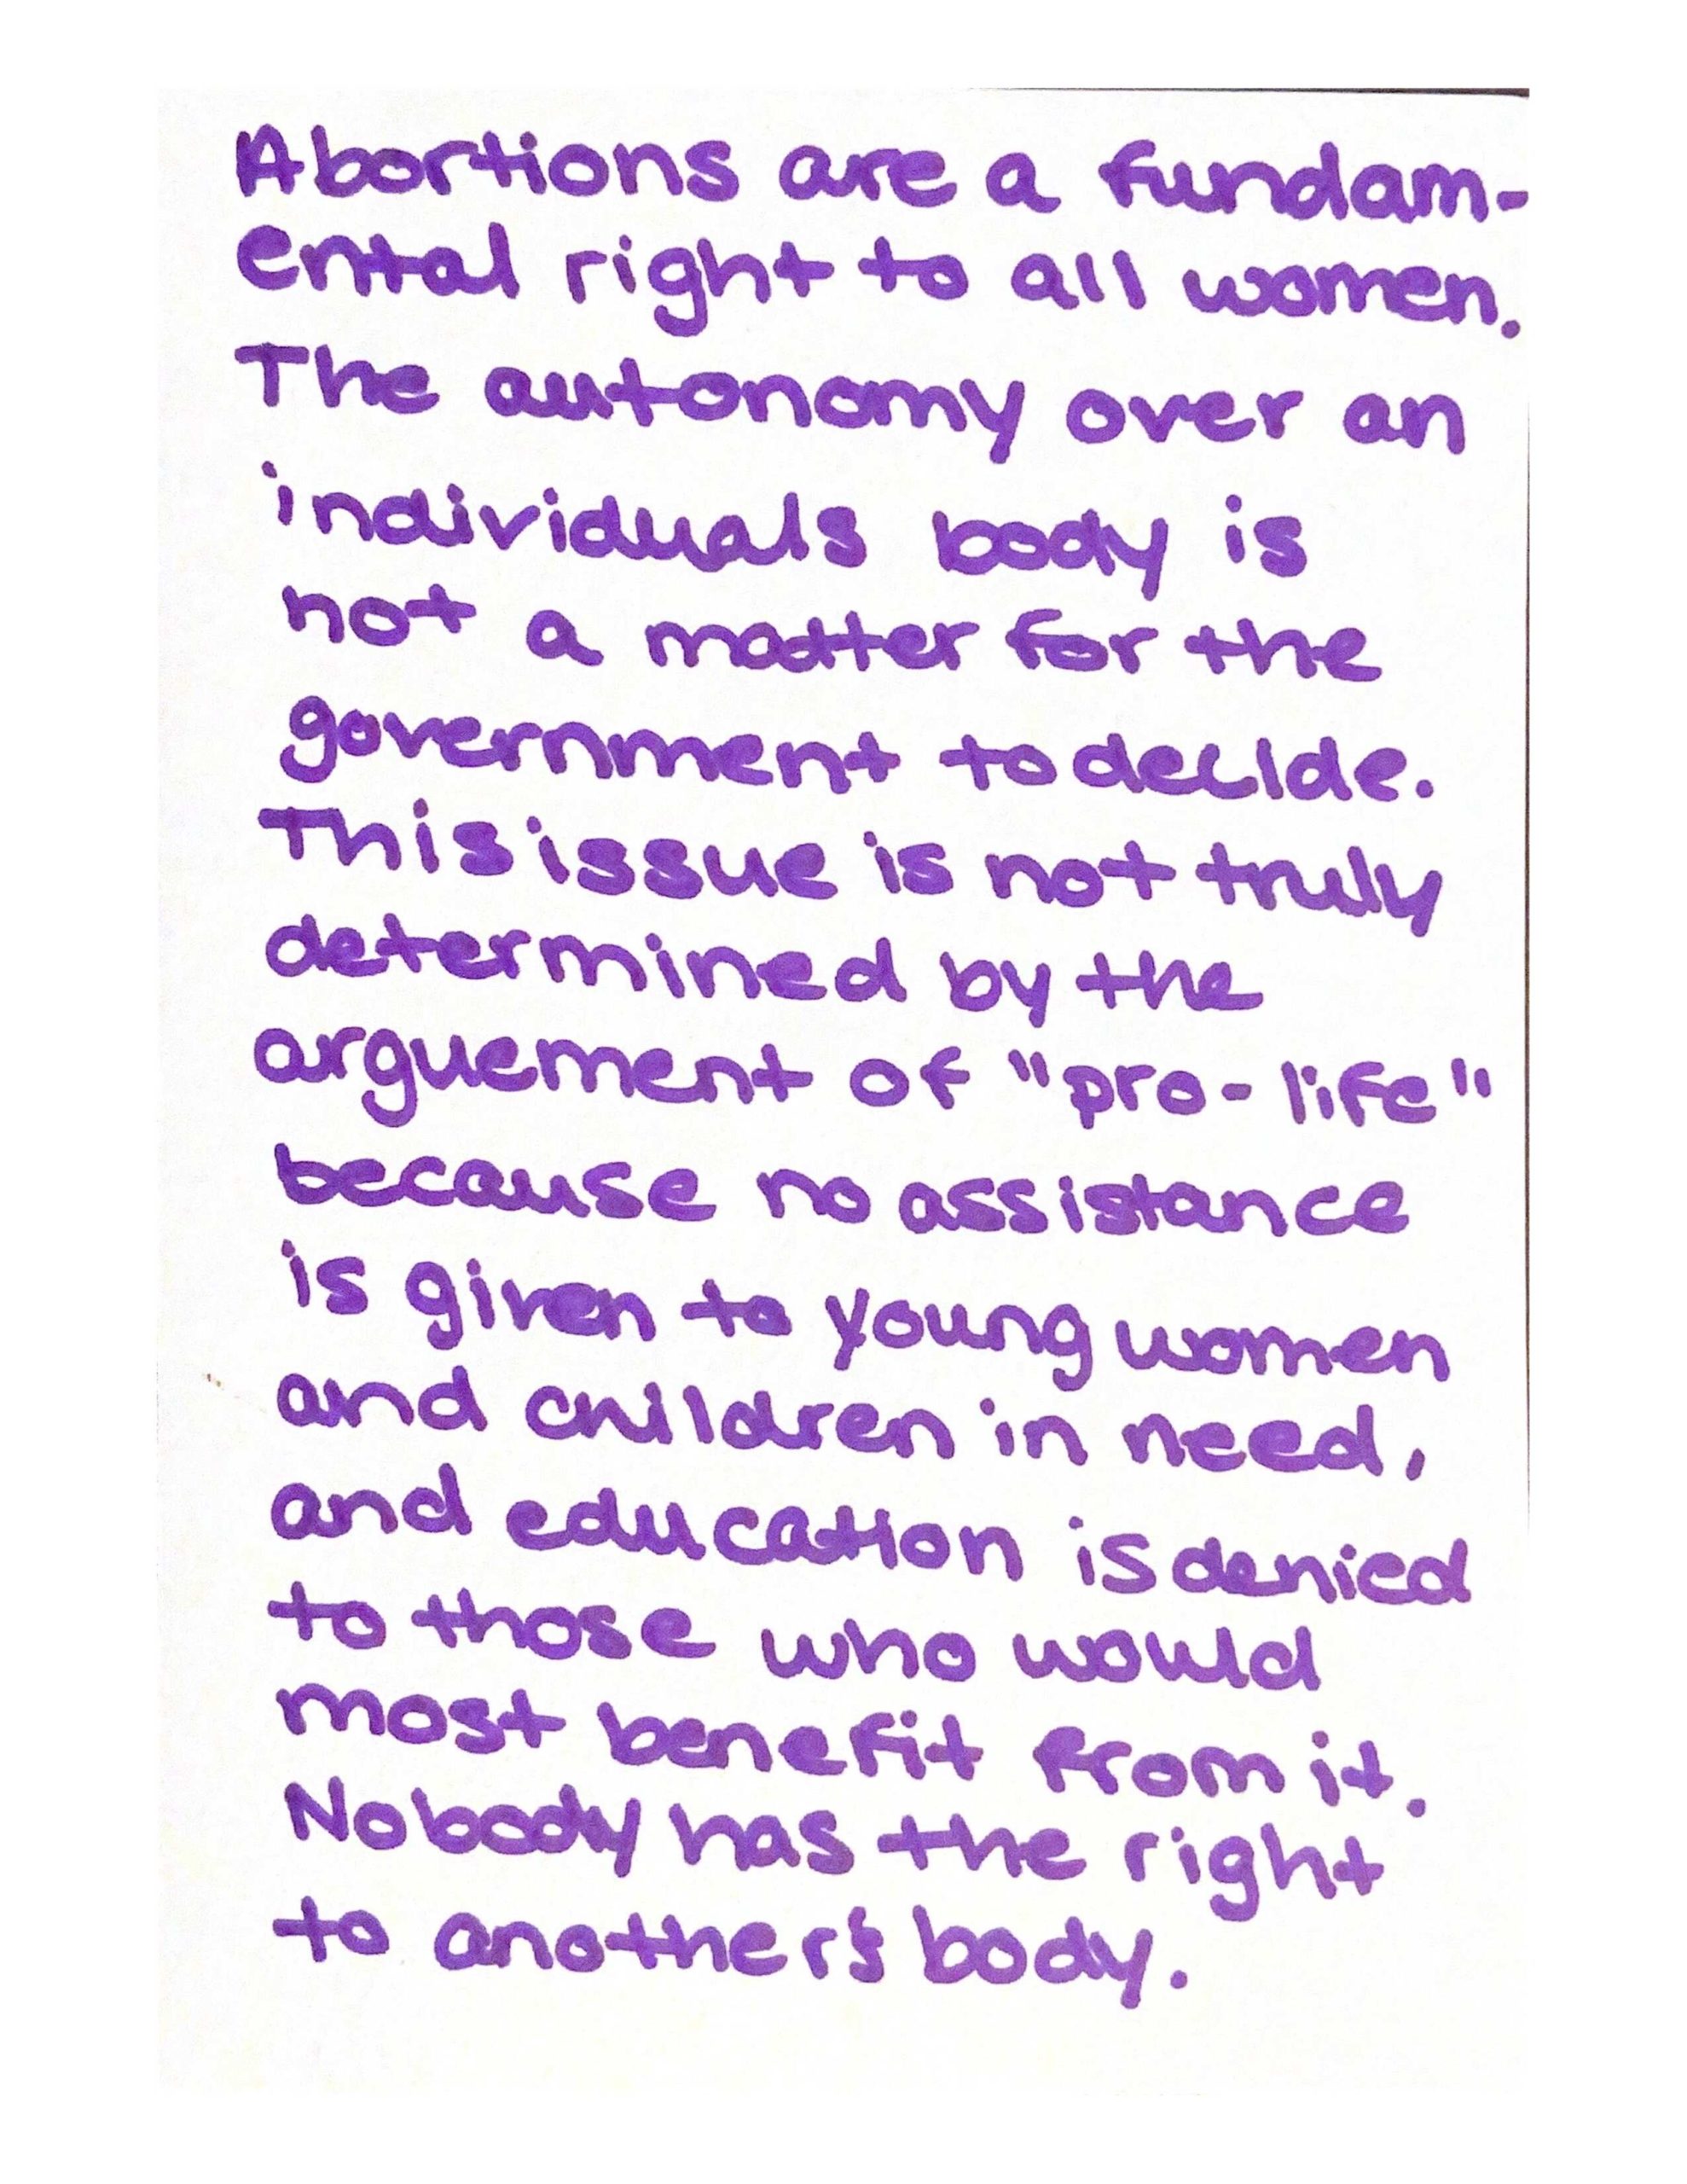 Abortions are a fundam-
ental right to all women.
The autonomy over an
individuals body is
not a matter for the
government to decide.
This issue is not truly
determined by the
arguement of "pro-life"
because no assistance
is given to young women
and children in need,
and education is denied
to those who would
most benefit from it.
Nobody has the right
to another's body.